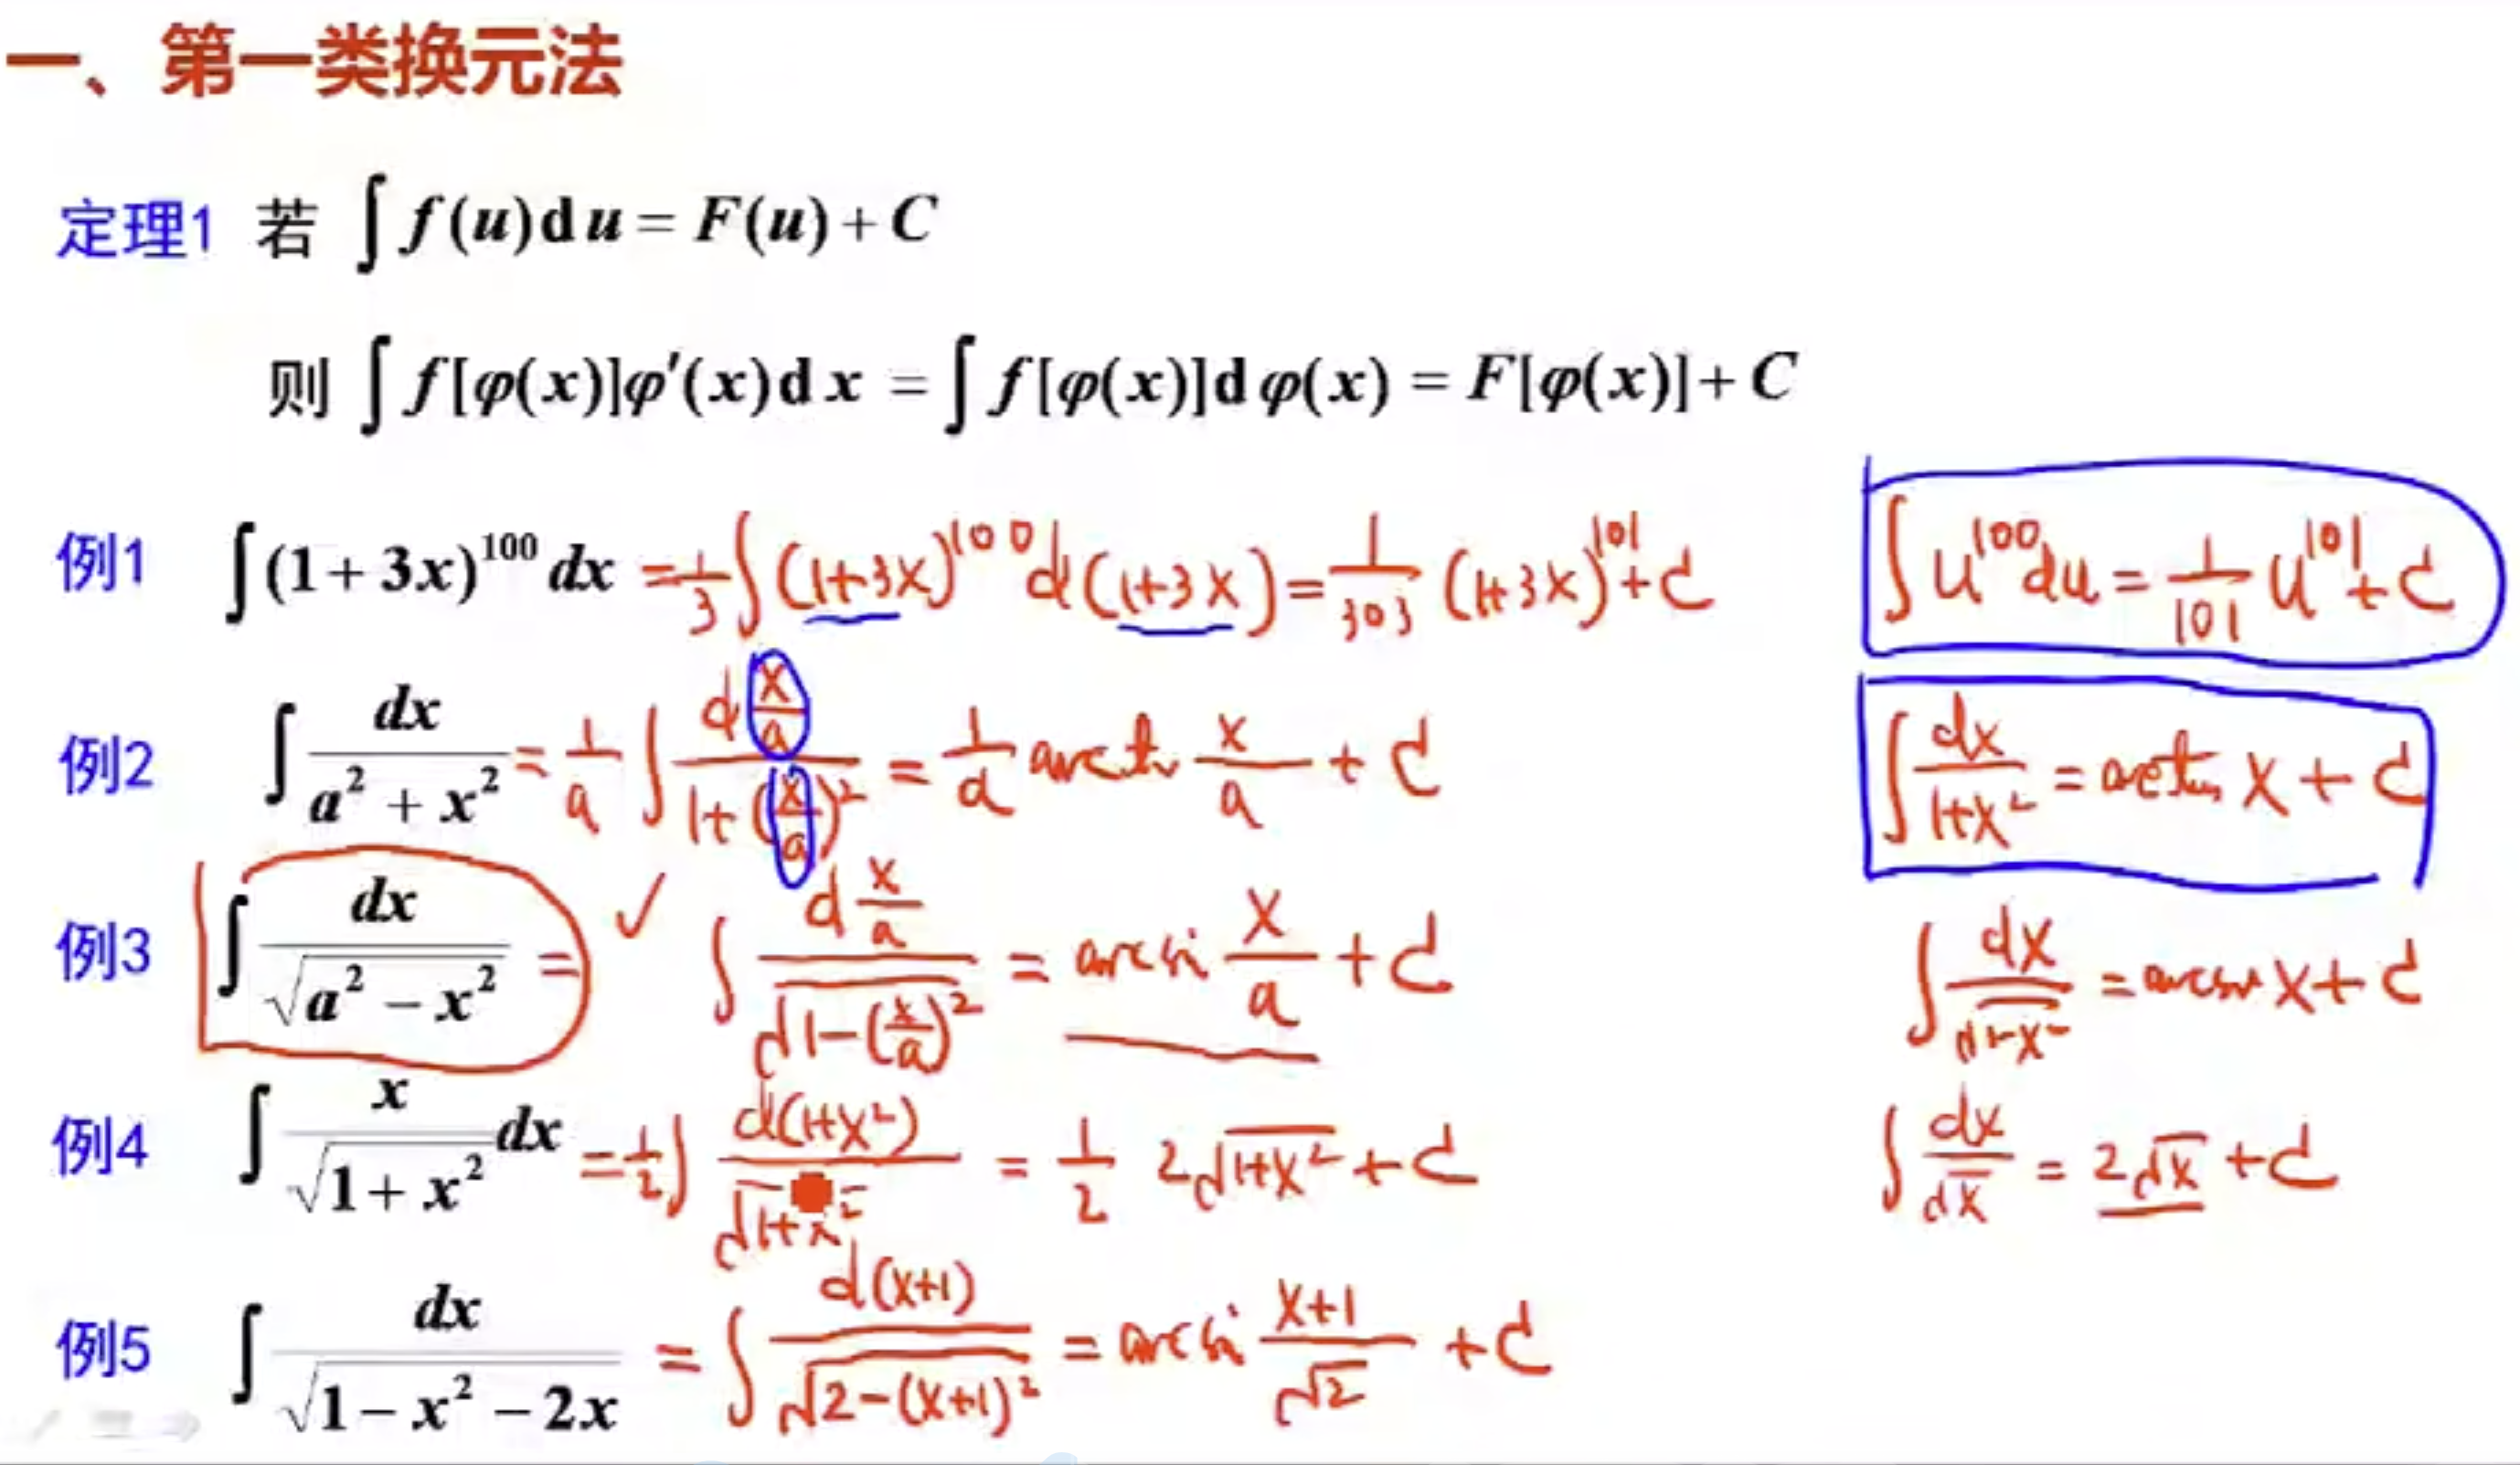 一、第一类换元法
定理1 若 ∫ f(u)du = F(u) + C
则 ∫ f[φ(x)]φ′(x)dx = ∫ f[φ(x)]dφ(x) = F[φ(x)] + C
例1 ∫(1+3x)¹⁰⁰ dx = 1/3 ∫(1+3x)¹⁰⁰ d(1+3x) = 1/303 (1+3x)¹⁰¹ + C
∫ u¹⁰⁰ du = 1/101 u¹⁰¹ + C
例2 ∫ dx/(a² + x²) = 1/a ∫ d(x/a)/(1+(x/a)²) = 1/a arctan x/a + C
∫ dx/(1+x²) = arctan x + C
例3 ∫ dx/√(a² − x²) = ✓ ∫ d(x/a)/√(1−(x/a)²) = arcsin x/a + C
∫ dx/√(1−x²) = arcsin x + C
例4 ∫ x/√(1+x²) dx = 1/2 ∫ d(1+x²)/√(1+x²) = 1/2 2√(1+x²) + C
∫ dx/√x = 2√x + C
例5 ∫ dx/√(1−x²−2x) = ∫ d(x+1)/√(2−(x+1)²) = arcsin (x+1)/√2 + C